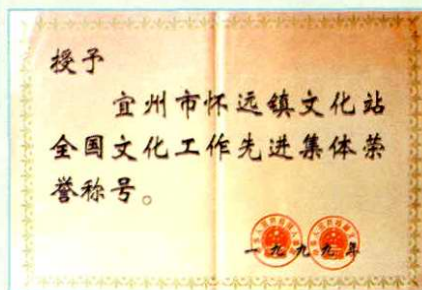 授予
宜州市怀远镇文化站
全国文化工作先进集体荣
誉称号。
一九九九年